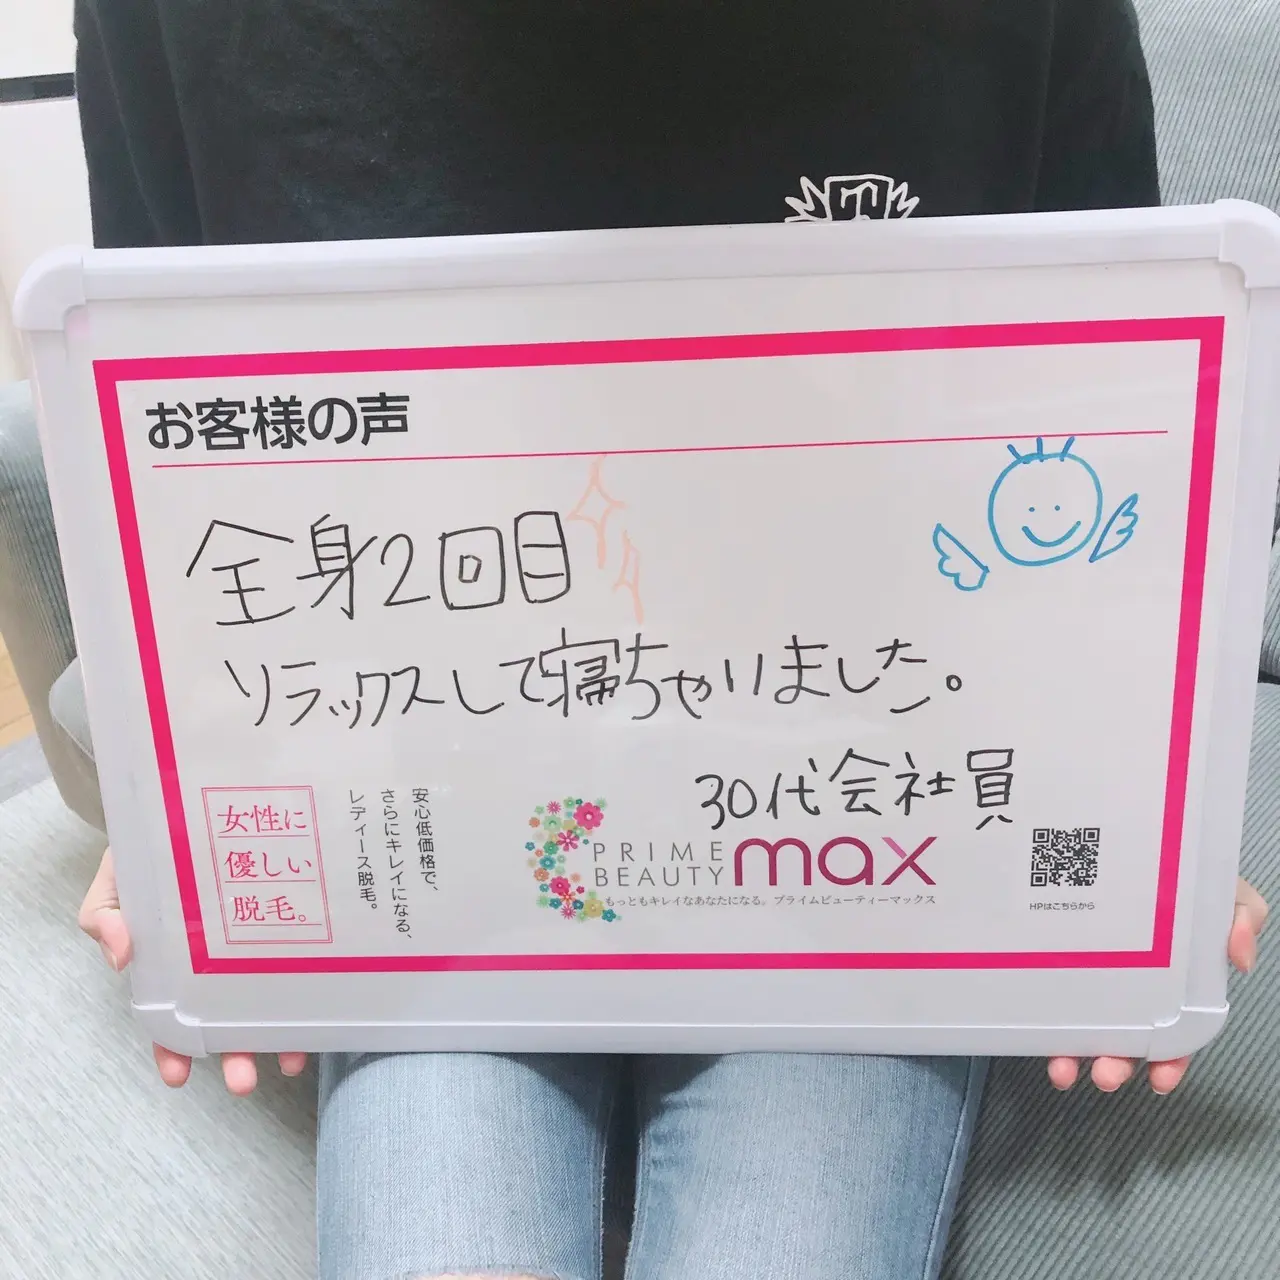 お客様の声
全身2回目
リラックスして寝ちゃいました。
30代会社員
女性に
優しい
脱毛。
安心低価格で、
さらにキレイになる、
レディース脱毛。
PRIME
BEAUTY max
もっともキレイなあなたになる。プライムビューティーマックス
HPはこちらから